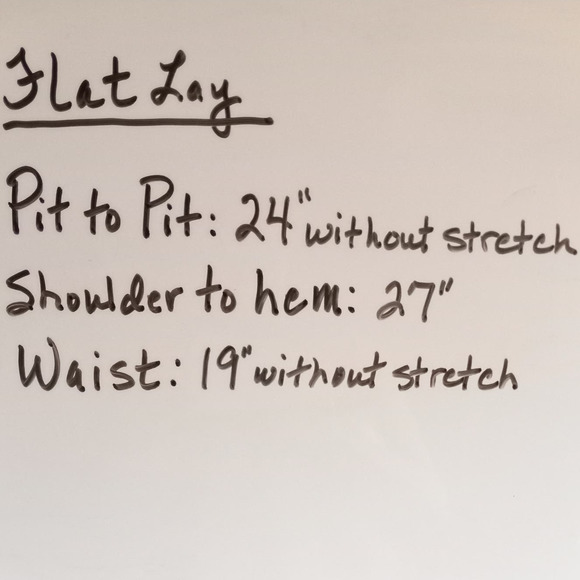 Flat Lay
Pit to Pit: 24" without stretch
Shoulder to hem: 27"
Waist: 19" without stretch